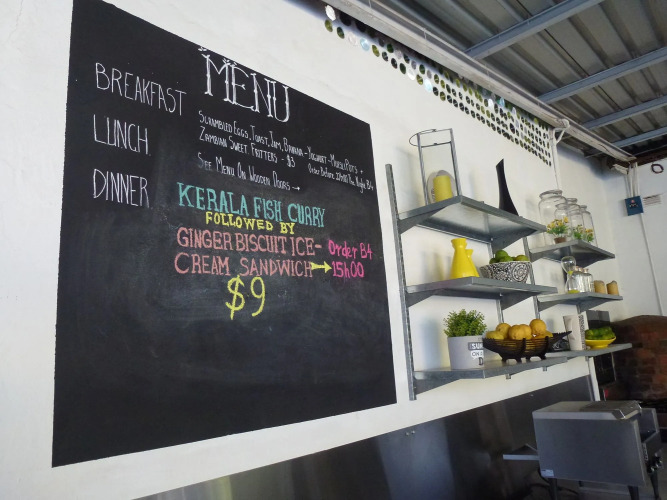 MENU
BREAKFAST
SCRAMBLED EGGS, TOAST, JAM, BANANA - YOGHURT - MUESLI POTS +
ZAMBIAN SWEET FRITTERS - $3
ORDER BEFORE 22H00 THE NIGHT B4
LUNCH
SEE MENU ON WOODEN DOORS →
DINNER
KERALA FISH CURRY
FOLLOWED BY
GINGER BISCUIT ICE-
CREAM SANDWICH →
ORDER B4
15h00
$9